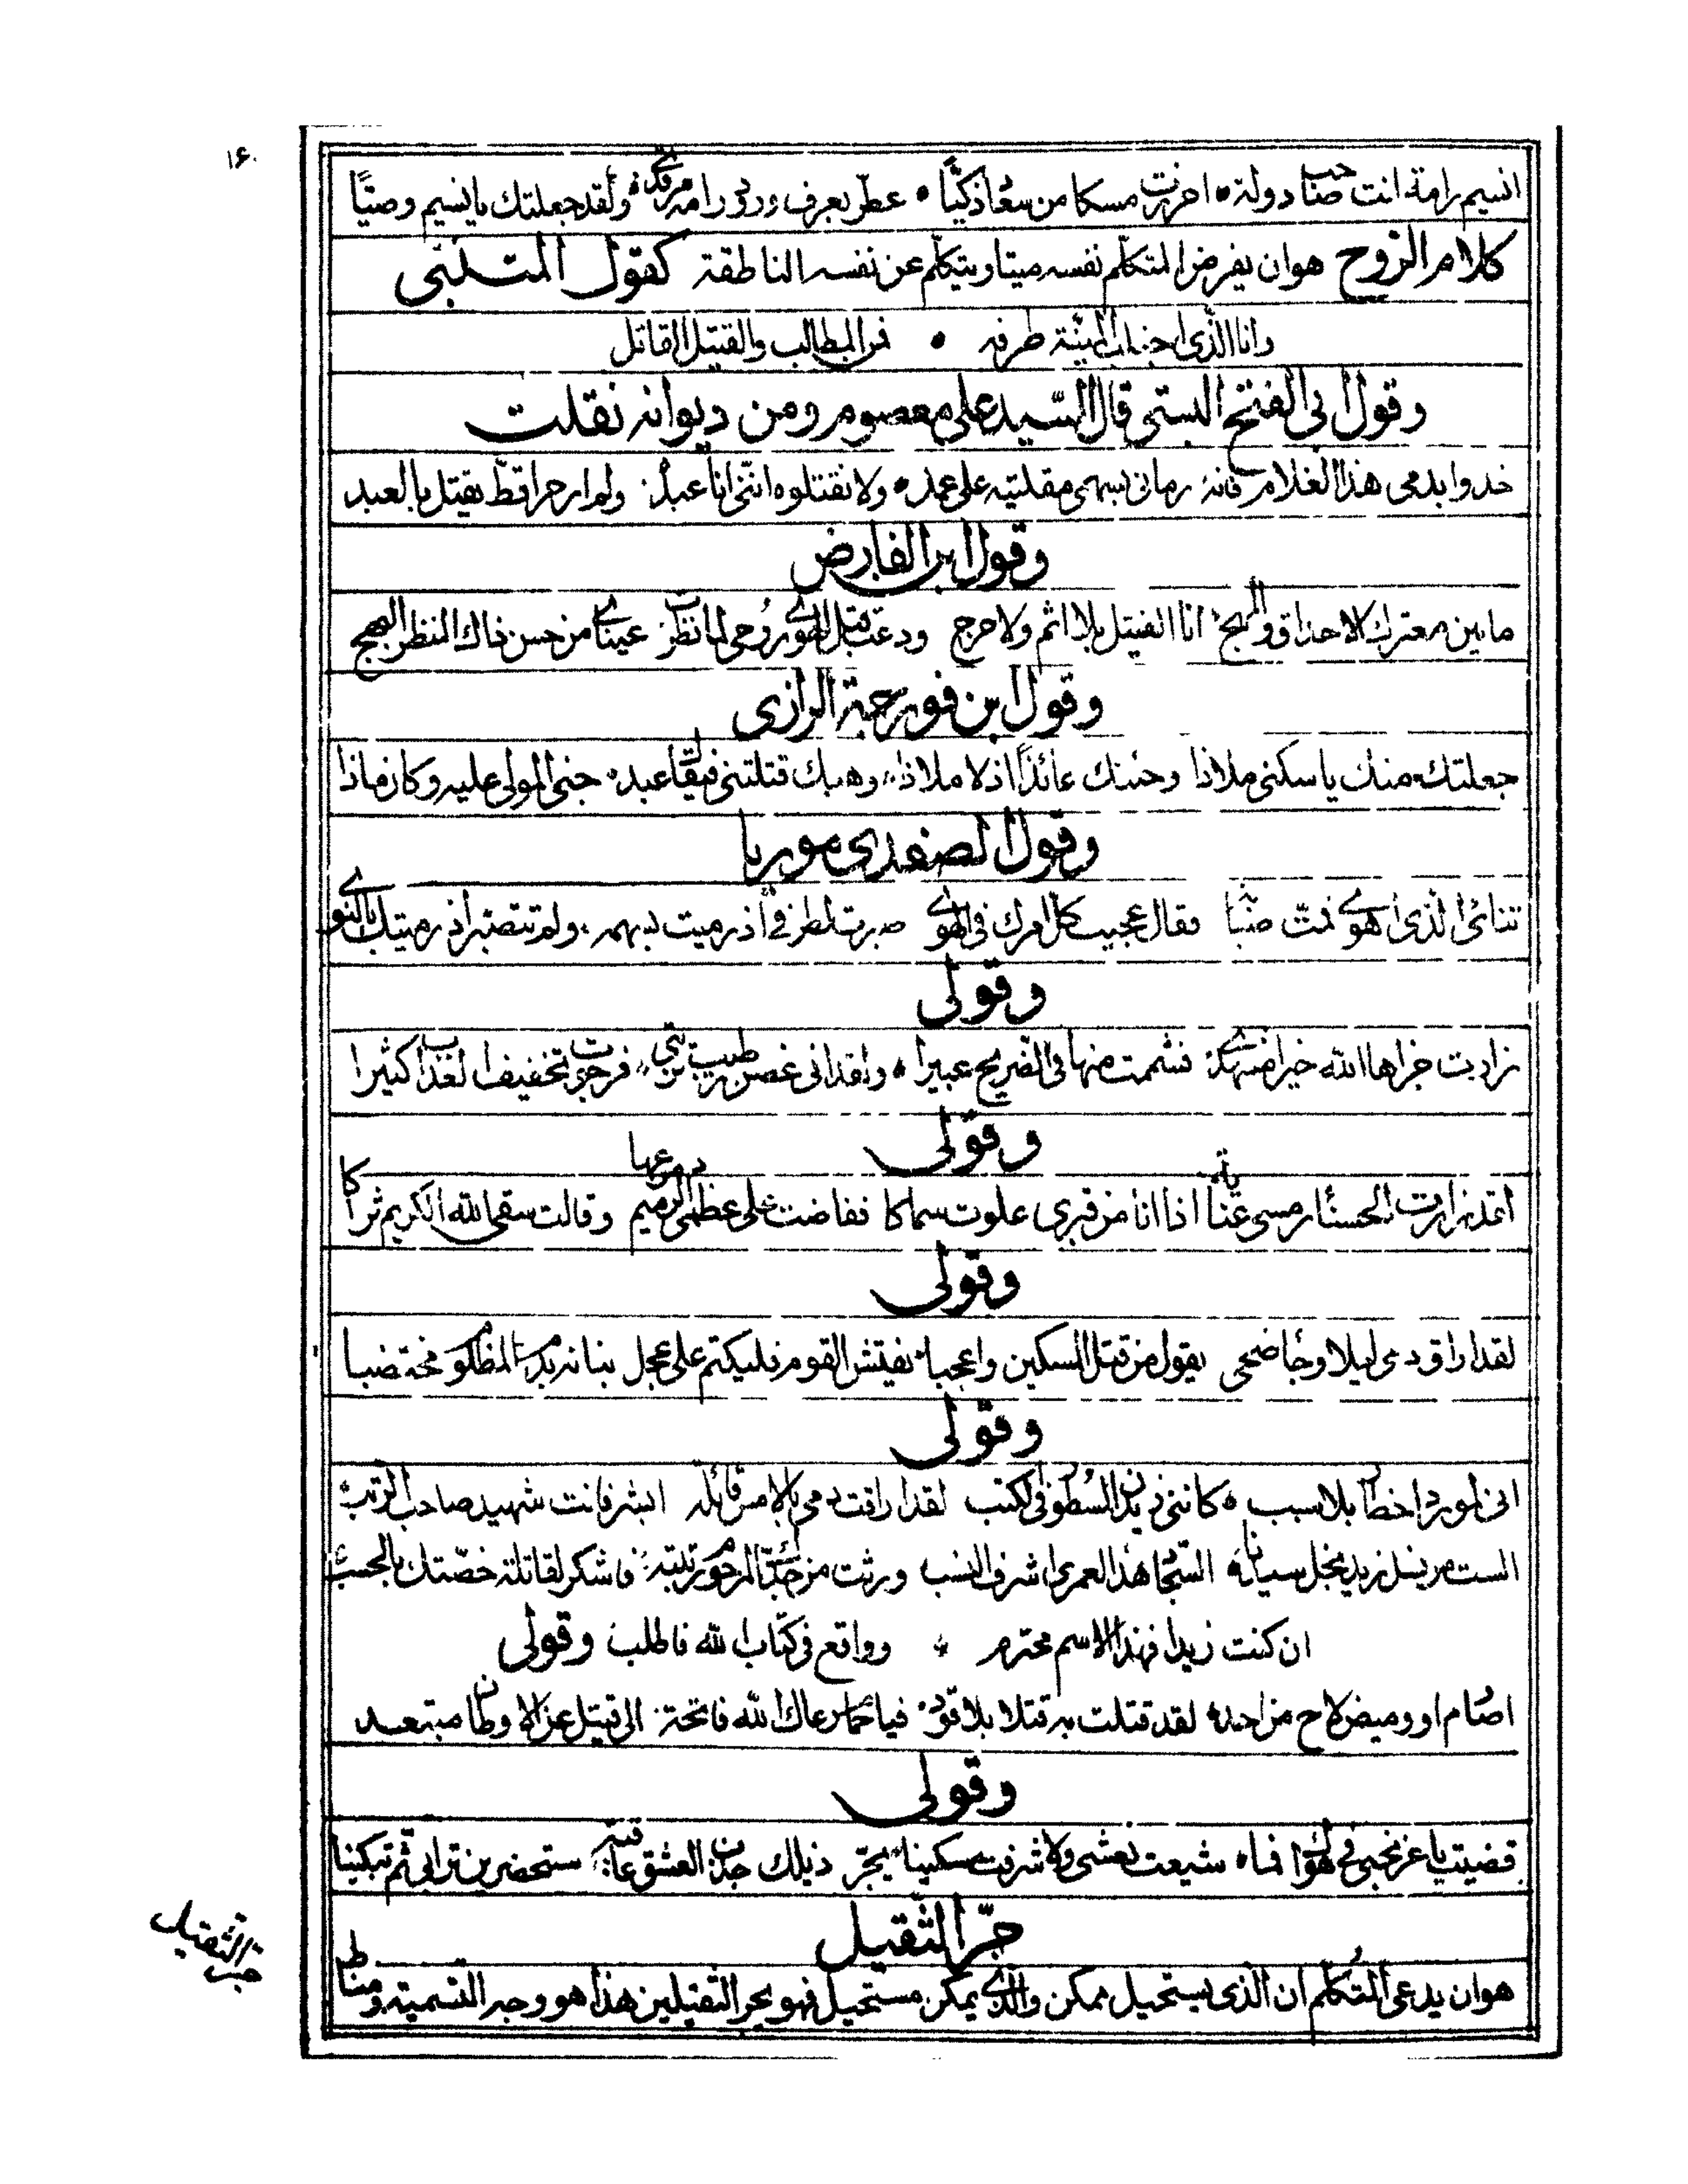 ١۶٠
انسيم رامة انت صاحب دولة احرزت مسكا من سعاد ذكيّا عطر بعرف ورود رامة ولقد جعلتك يا نسيم وصيّا
كلام الروح هو ان يفرض المتكلم نفسه ميتا ويتكلم عن نفسه الناطقة كقول المتنبى
وانا الذى اجتلب المنيّة طرفه فمن المطالب والقتيل القاتل
وقول ابى الفتح البستى قال السّيد على معصوم ومن ديوانه نقلت
خذوا بدمى هذا الغلام فانه رمانى بسهمى مقلتيه على عمد ولا تقتلوه انّنى انا عبده ولم ار حرا قطّ يقتل بالعبد
وقول ابن الفارض
ما بين معترك الاحداق والمهج انا القتيل بلا اثم ولا حرج ودعت قبل الهوى روحى لما نظرت عيناى من حسن ذاك المنظر البهج
وقول ابن فورجة الرازى
جعلتك منك يا سكنى ملاذا وجئتك عائذًا اذ لا ملاذا وهبك قتلتنى فيقا عبد جنى المولى عليه وكان ماذا
وقول الصفدى موريا
تنائى الذى اهوى فمتّ صبّا فقال عجيب كل امرك فى الهوى صبرت لطرفى اذ رميت بسهمه ولم تتصبّر اذ رميتك بالنوى
وقولى
زارت جزاها الله خيرا مشهدى فشممت منها فى الضريح عبيرا ولقد اتى غصن رطيب تربتى فرجوت تخفيفا لعذاب كثيرا
وقولى
لقد زارت الحسنا رمسى عناية اذا انا من قبرى علوت سماكا ففاضت على عظمى الرميم دموعها وقالت سقى الله الكريم ثراكا
وقولى
لقد اراق دمى ليلا وجا ضحى يقول من قتل المسكين واعجبا يفتش القوم فليكتم على عجل بنانه بدم المظلوم مختضبا
وقولى
انى لمورد اخطا بلا سبب كاننى زيدن المسطور فى الكتب لقد اراقت دمى بالامس قائلة ابشر فانت شهيد صاحب الرتب
الست من نسل زيد نجل سيدنا السّجاد هذا لعمرى اشرف النسب ورثت من جدّك المرحوم رتبته فاشكر لقاتلة خصّتك بالحسب
ان كنت زيدا فهذا الاسم محترم وواقع فى كتاب الله فاطلب وقولى
اصارم او وميض لاح من احد لقد قتلت به قتلا بلا قود فيا حمام رعاك الله فاتحة الى قتيل عن الاوطان مبتعد
وقولى
قضيت يا عز نحبى فى هواك فما شيعت نعشى ولا شرفت مسكينا يجرّ ذيلك جدن العشق عاقبة ستحضرين ترابى ثم تبكينا
جرّ الثقيل
هو ان يدعى المتكلم ان الذى يستحيل ممكن والذى يمكن مستحيل فهو يجر الثقيلين هذا هو وجه التسمية ومناط
جر الثقيل